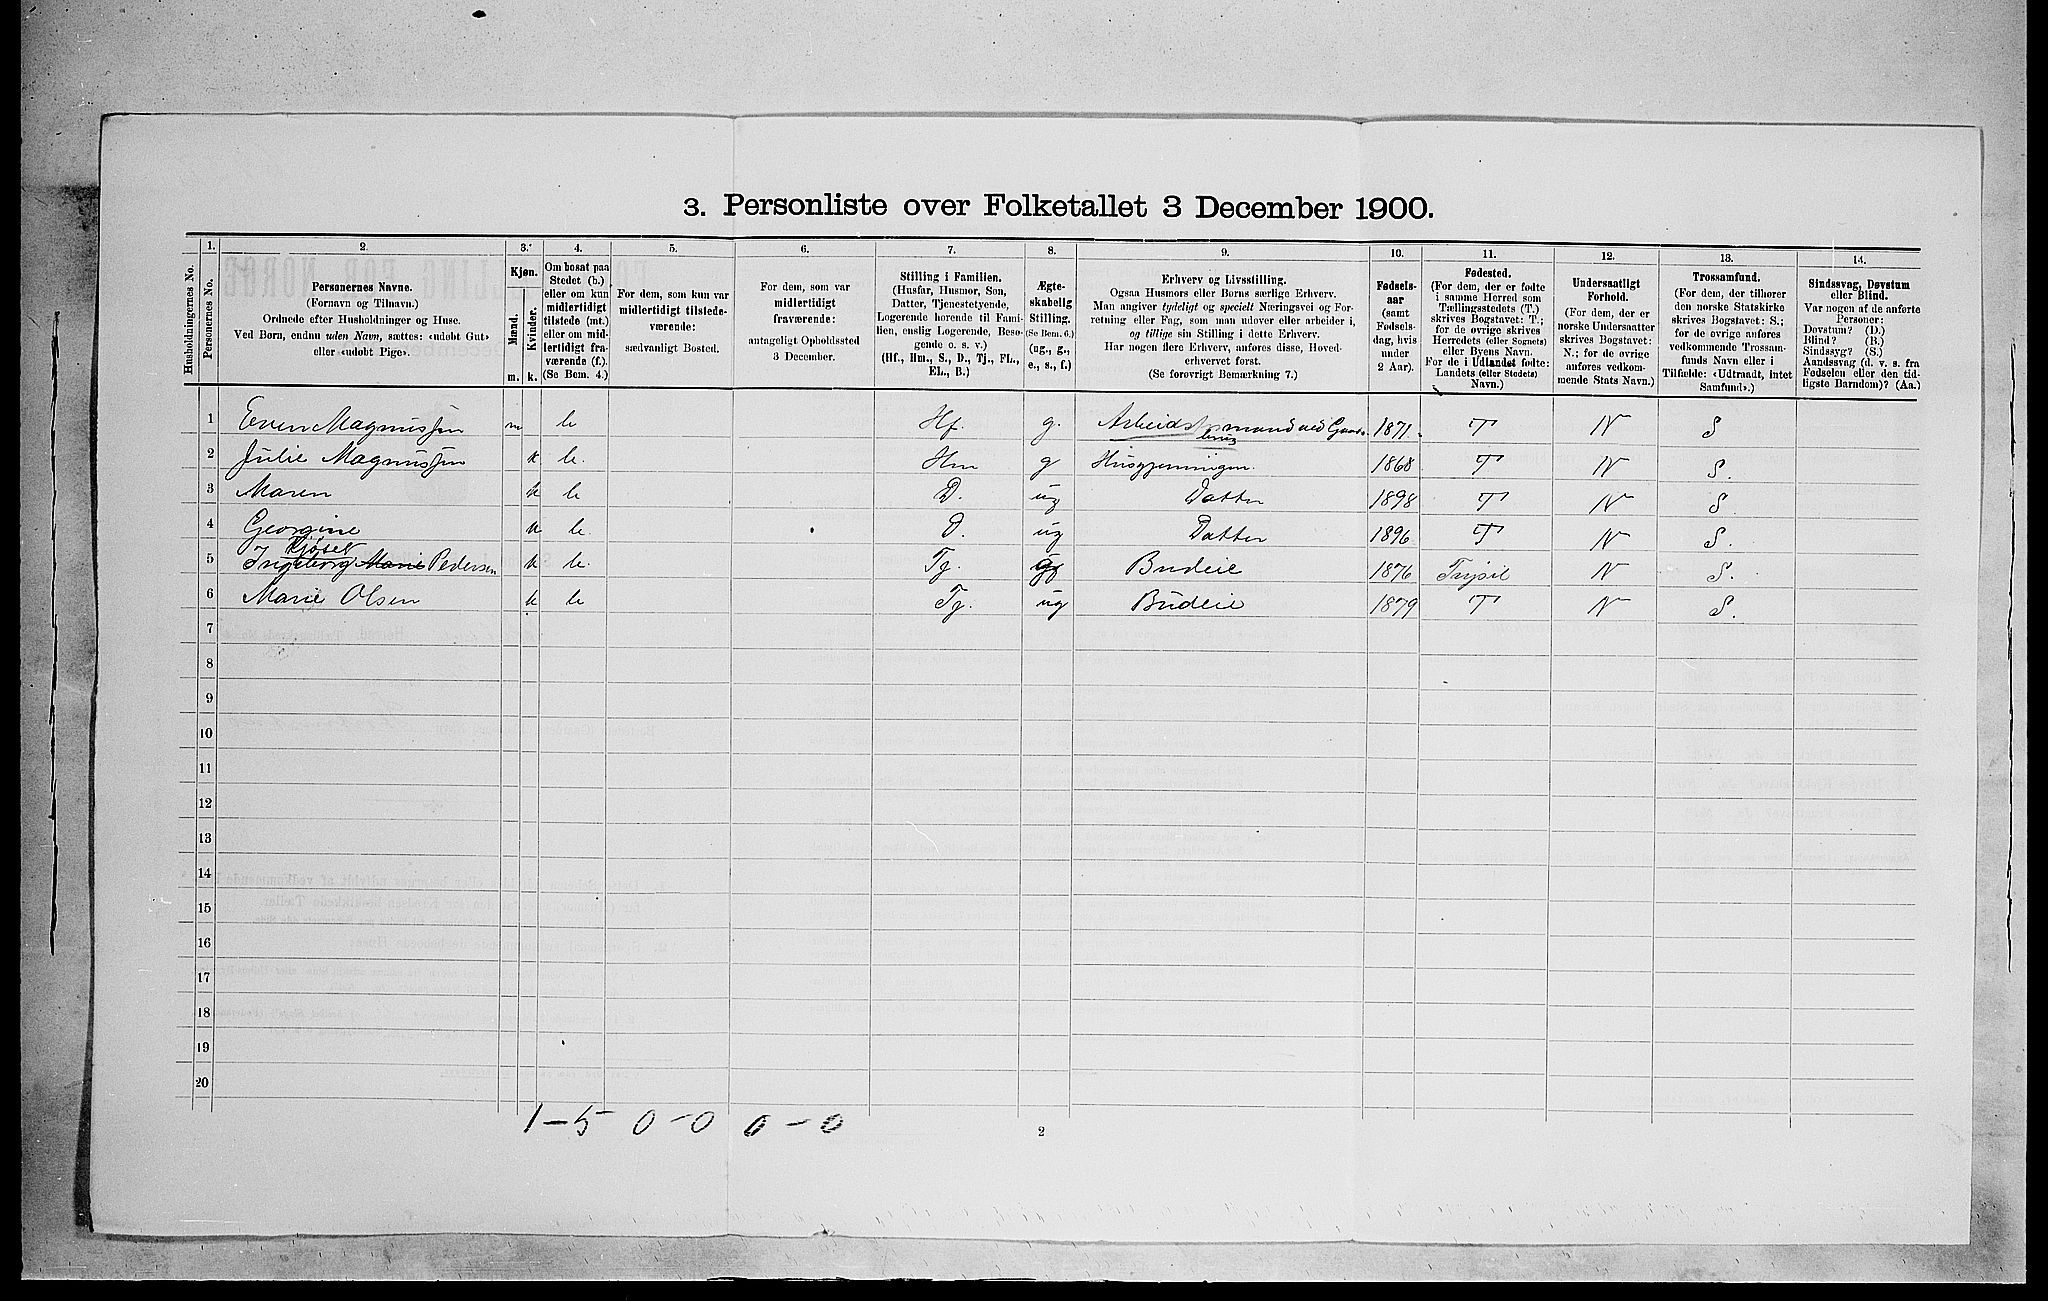 3. Personliste over Folketallet 3 December 1900.
1. 2. 3. 4. 5. 6. 7. 8. 9. 10. 11. 12. 13. 14.
Husholdningernes No.
Personernes No.
Personernes Navne.
(Fornavn og Tilnavn.)
Ordnede efter Husholdninger og Huse.
Ved Børn, endnu uden Navn, sættes: «udøbt Gut»
eller «udøbt Pige».
Kjøn.
Mænd.
Kvinder.
m. k.
Om bosat paa
Stedet (b.)
eller om kun
midlertidigt
tilstede (mt.)
eller om mid-
lertidigt fra-
værende (f.).
(Se Bem. 4.)
For dem, som kun var
midlertidigt tilstede-
værende:
sædvanligt Bosted.
For dem, som var
midlertidigt
fraværende:
antageligt Opholdssted
3 December.
Stilling i Familien.
(Husfar, Husmor, Søn,
Datter, Tjenestetyende,
Logerende hørende til Fami-
lien, enslig Logerende, Besø-
gende o. s. v.)
(Hf., Hm., S., D., Tj., FL.,
EL., B.)
Ægte-
skabelig
Stilling.
(Se Bem. 6.)
(ug., g.,
e., s., f.)
Erhverv og Livsstilling.
Ogsaa Husmors eller Børns særlige Erhverv.
Man angiver tydeligt og specielt Næringsvei og For-
retning eller Fag, som man udøver eller arbeider i,
og tillige sin Stilling i dette Erhverv.
Har nogen flere Erhverv, anføres disse, Hoved-
erhvervet først.
(Se forøvrigt Bemærkning 7.)
Fødsels-
aar
(samt
Fødsels-
dag, hvis
under
2 Aar).
Fødested.
(For dem, der er fødte
i samme Herred som
Tællingsstedets (T.)
skrives Bogstavet: T.;
for de øvrige skrives
Herredets (eller Sognets)
eller Byens Navn.
For de i Udlandet fødte:
Landets (eller Stedets)
Navn.)
Undersaatligt
Forhold.
(For dem, der er
norske Undersaatter
skrives Bogstavet:
N.; for de øvrige
anføres vedkom-
mende Stats Navn.)
Trossamfund.
(For dem, der tilhører
den norske Statskirke
skrives Bogstavet: S.;
for de øvrige anføres
vedkommende Trossam-
funds Navn eller i
Tilfælde: «Udtraadt, intet
Samfund».)
Sindssvag, Døvstum
eller Blind.
Var nogen af de anførte
Personer:
Døvstum? (D.)
Blind? (B.)
Sindssyg? (S.)
Aandssvag (d. v. s. fra
Fødselen eller den tid-
ligste Barndom)? (Aa.)
1 Even Magnussen m b Hf. g. Arbeidsmand ved Gaards- 1871. T N S
brug
2 Julie Magnussen k b. Hm g Husgjerningen. 1868 T N S.
3 Maren k b D. ug Datter 1898 T N S.
4 Georgine k b. D. ug Datter 1896 T N S.
Kjøset
5 Ingeborg Marie Pedersen k b. Tj. ug Budeie 1876 Trysil N S.
6 Marie Olsen k b Tj. ug Budeie 1879 T N S.
7
8
9
10
11
12
13
14
15
16
17
18
19
20
1-5 0-0 0-0
2